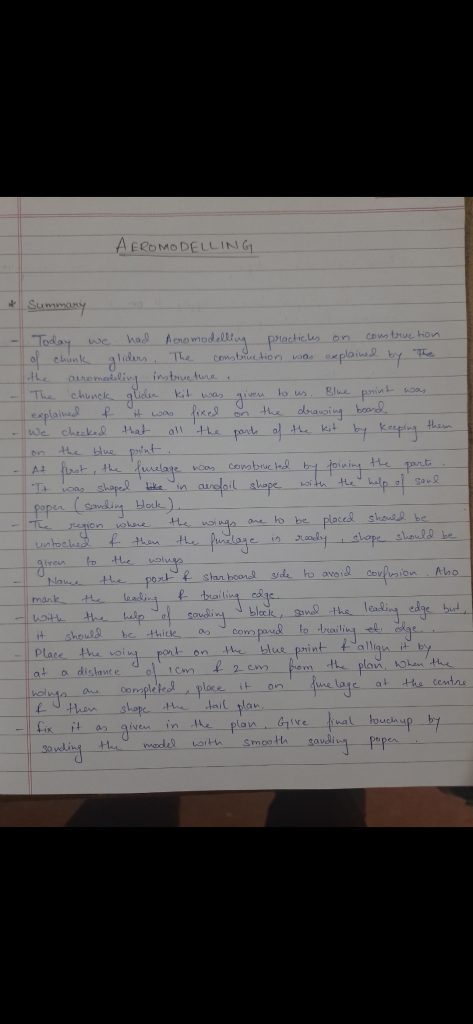 AEROMODELLING
* Summary
- Today we had Aeromodelling practicles on construction
of chunk gliders. The construction was explained by The
the aeromodeling instructure.
- The chunck glider kit was given to us. Blue print was
explained & it was fixed on the drawing board.
- We checked that all the parts of the kit by keeping them
on the blue print.
- At first, the fuselage was constructed by joining the parts.
It was shaped like in aerofoil shape with the help of sand
paper (sanding block).
- The region where the wings are to be placed should be
untoched & then the fuselage is ready, shape should be
given to the wings
- Name the port & starboard side to avoid confusion. Also
mark the leading & trailing edge.
- With the help of sanding block, sand the leading edge but,
it should be thick as compared to trailing edge.
- Place the wing part on the blue print & allign it by
at a distance of 1cm & 2 cm from the plan. When the
wings are completed, place it on fuselage at the centre
& then shape the tail plan.
- fix it as given in the plan. Give final touchup by
sanding the model with smooth sanding paper.